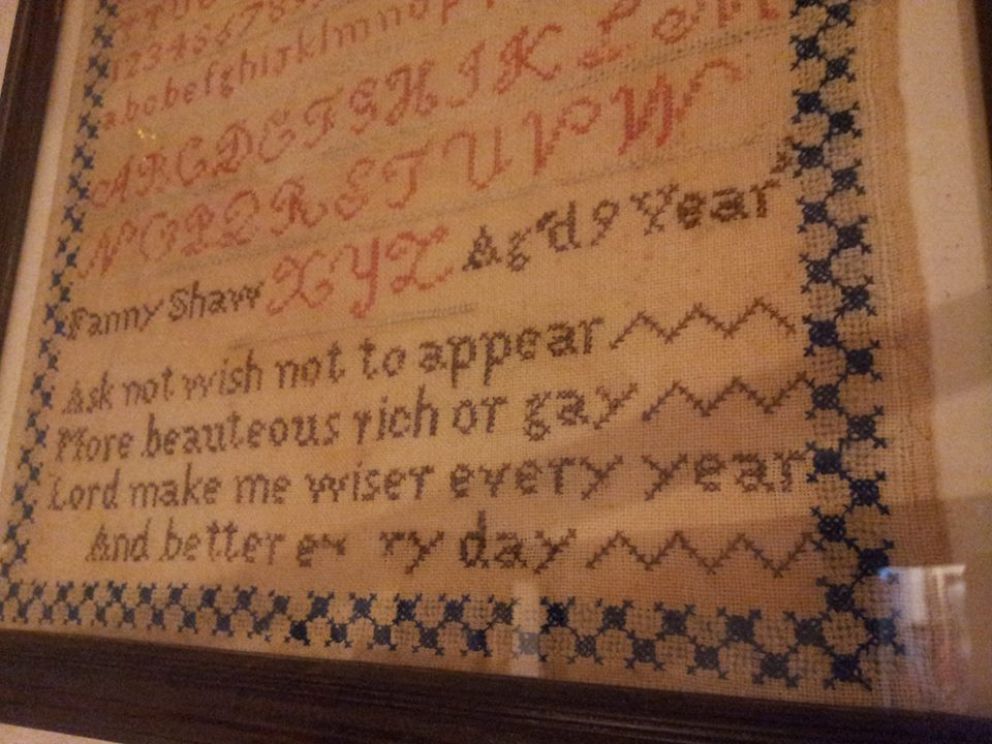 1234567
abcdefghijklmnop
ABCDEFGHIKL
NOPQRSTUVW
Fanny Shaw XYZ Ag'd 9 Year
Ask not wish not to appear
More beauteous rich or gay
Lord make me wiser every year
And better ev ry day